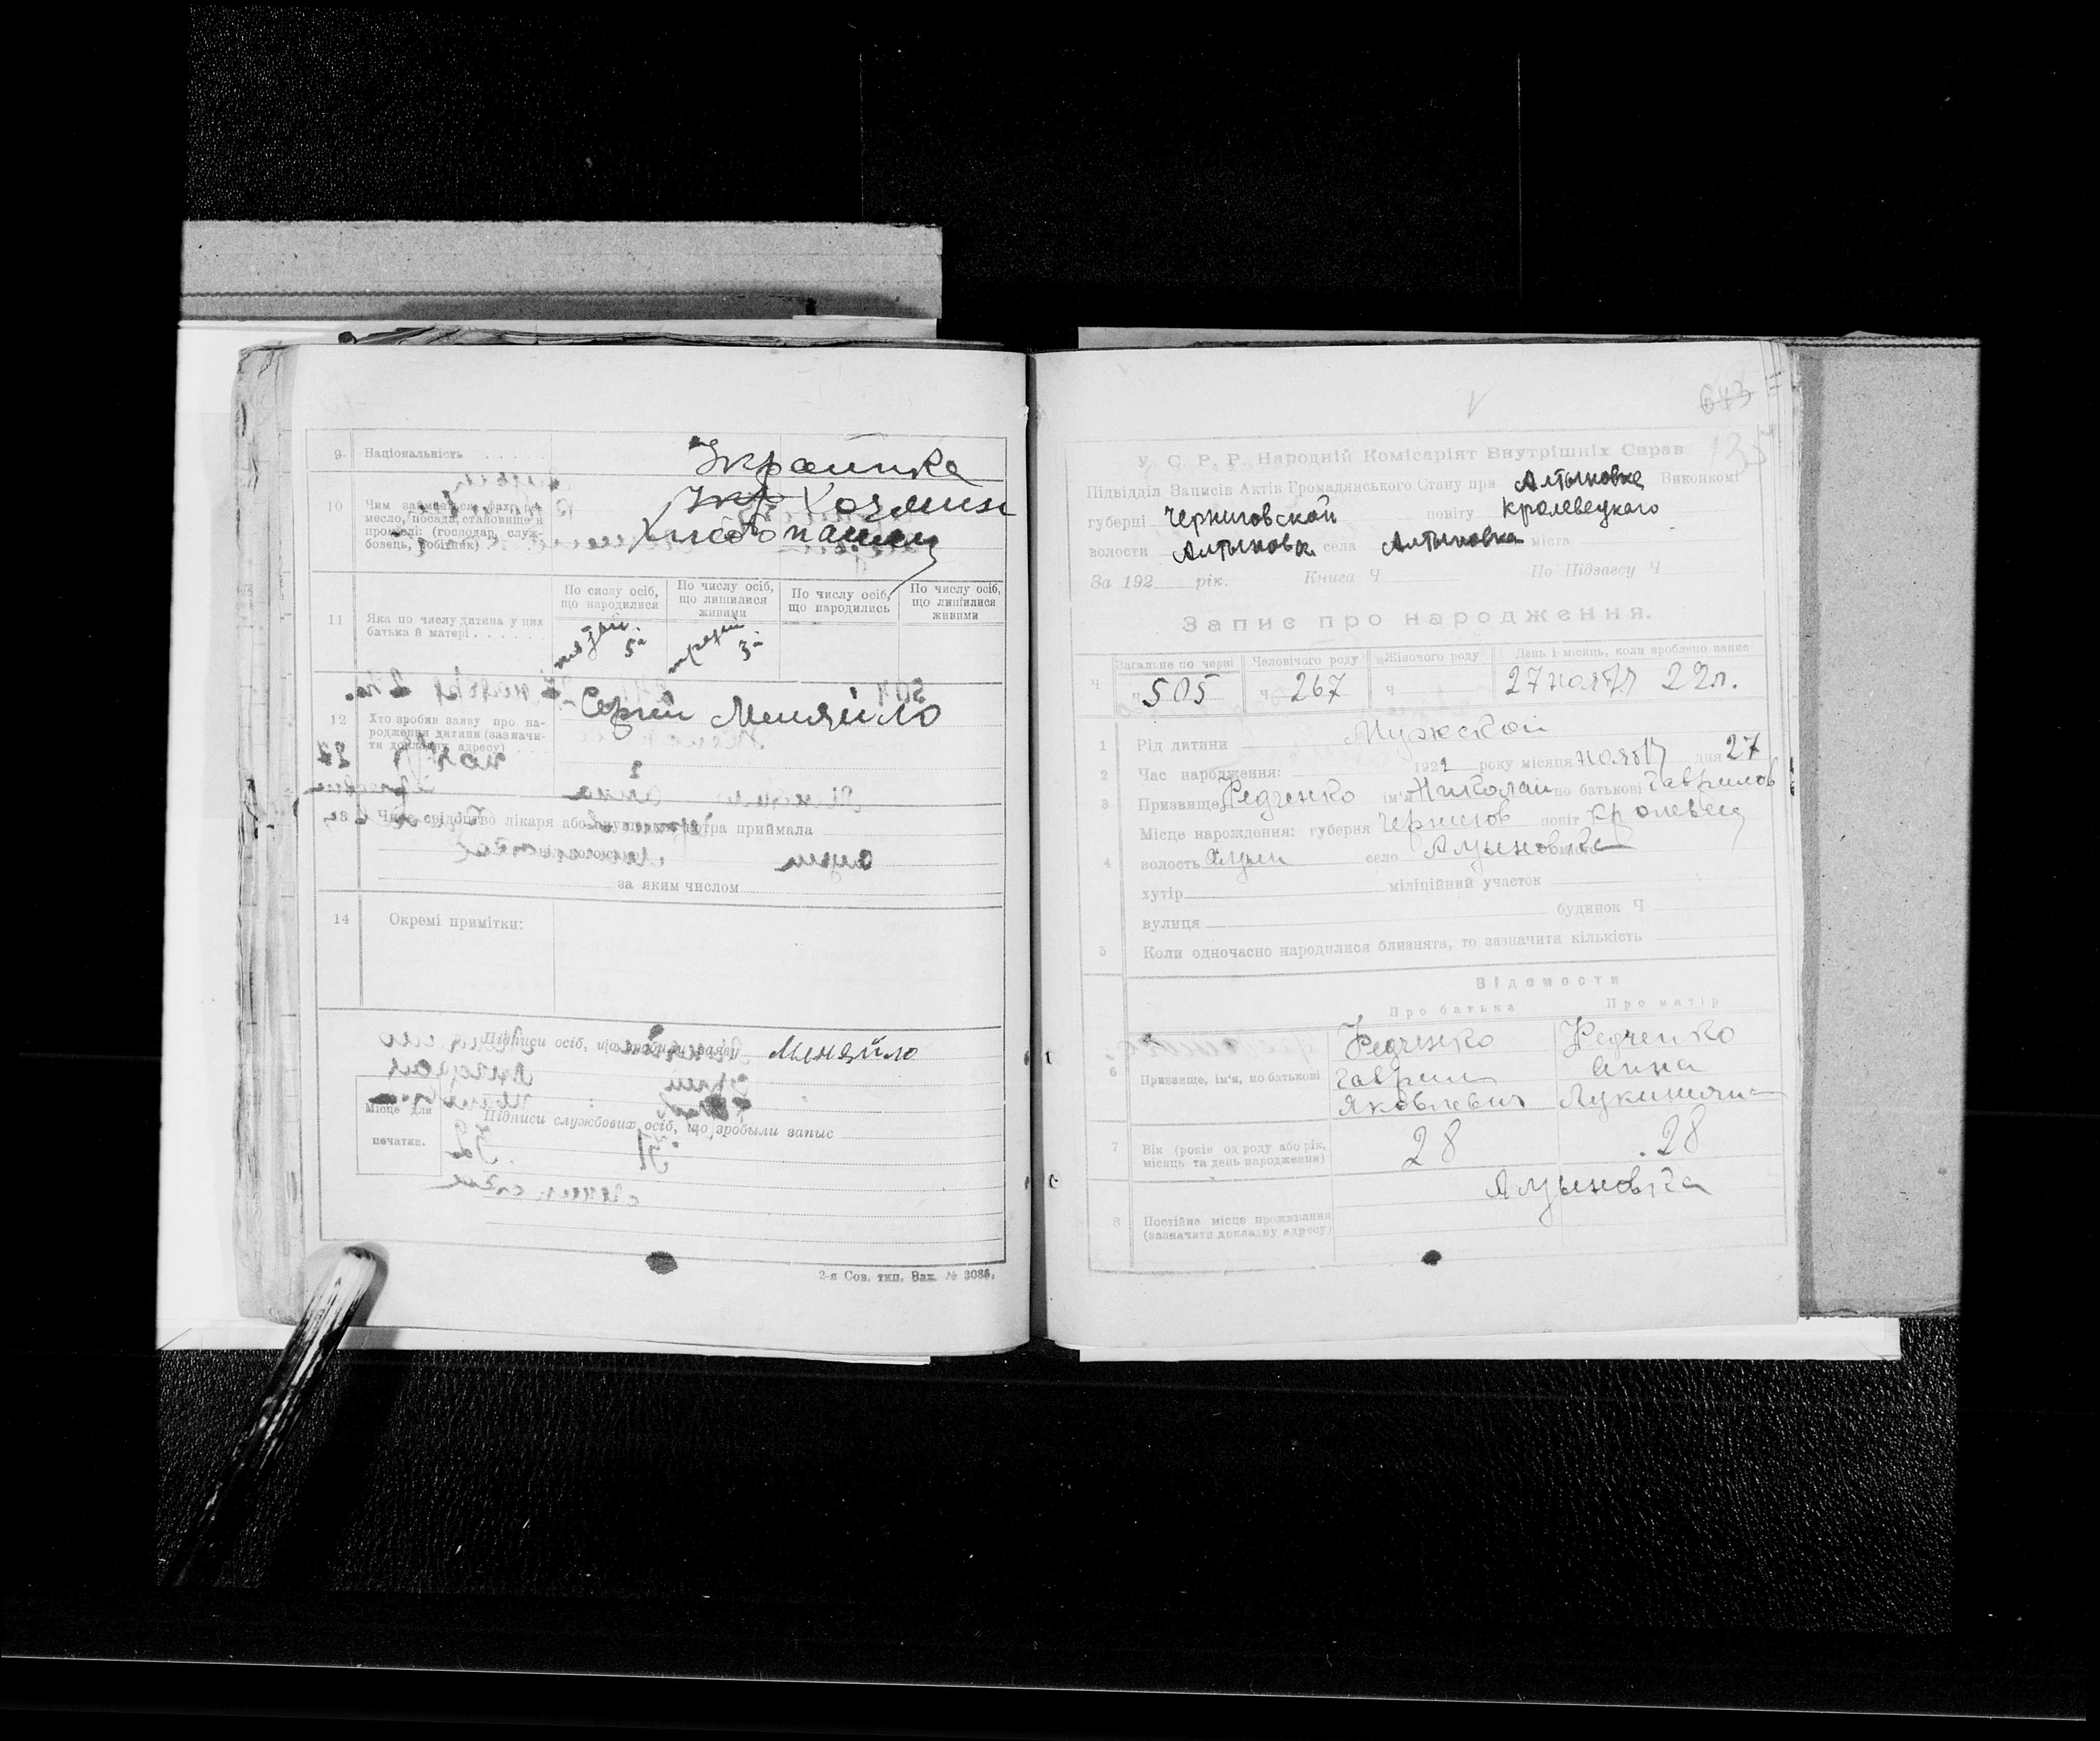 9 Національність
Украинка
10 Чим займається: фах, ре-
месло, посада, становище в
промислі: (господар, служ-
бовець, робітник)
Укр Хозяин
Хлебопашец
11 Яка по числу дитина у цих
батька й матері
По числу осіб, що народилися
По числу осіб, що лишилися живими
По числу осіб, що народились
По числу осіб, що лишилися живими
5й
третий 3й
12 Хто зробив заяву про на-
родження дитини (зазначи-
ти докладну адресу)
Сергій Меняйло
13
приймала
за яким числом
14 Окремі примітки:
Підписи осіб, що зробили заяву Меняйло
Місце для
печатки.
Підписи службових осіб, що зробыли запыс
2-я Сов. тип. Зак. № 3086.
643
135
У. С. Р. Р. Народній Комісаріят Внутрішніх Справ
Підвідділ Записів Актів Громадянського Стану при Алтыновке Виконкомі
губерні Черниговской повіту Кролевецкаго
волости Алтыновск. села Алтыновка міста
За 192 рік. Книга Ч По Підзагсу Ч
Запис про народження.
Загальне по черві Чоловічого роду Жіночого роду День і місяць, коли зроблено запис
Ч ч 505 ч 267 ч 27 ноября 22 г.
1 Рід дитини Мужской
2 Час народження: 1922 року місяця ноября дня 27
3 Призвище Редченко ім'я Николай по батькові Гаврилов
4 Місце народження: губерня Чернигов повіт Кролевец
волость село Алтыновка
хутір міліційний участок
вулиця будинок Ч
5 Коли одночасно народилися близнята, то зазначити кількість
Відомости
Про батька Про матір
6 Призвище, ім'я, по батькові
Редченко Редченко
Гаврил Анна
Яковлевич Лукинична
7 Вік (років од роду або рік,
місяць та день народження)
28 28
8 Постійне місце проживання
(зазначити докладну адресу)
Алтыновка